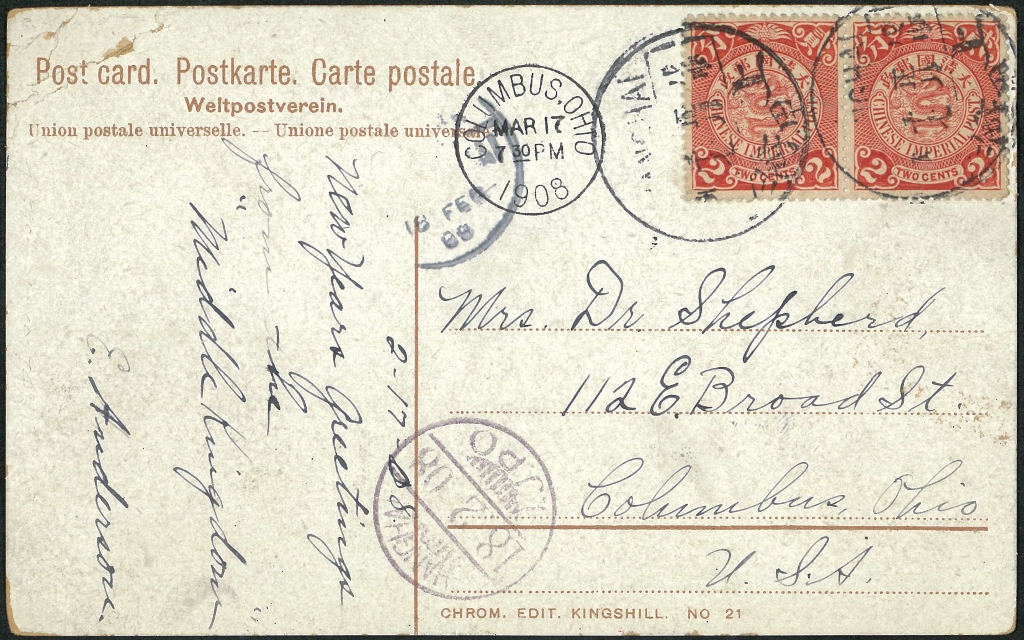 Post card. Postkarte. Carte postale.
Weltpostverein.
Union postale universelle. — Union postale universale
COLUMBUS, OHIO
MAR 17
7 30 PM
1908
18 FEB
08
CHINESE IMPERIAL POST
2 TWO CENTS 2
CHINESE IMPERIAL POST
2 TWO CENTS 2
2-17-08
New Years Greetings
from the
"Middle Kingdom"
E. Anderson.
Mrs. Dr. Shepherd,
112 E. Broad St.
Columbus, Ohio
U. S. A.
I.J.P.O
18 2 08
SHANGHAI
CHROM. EDIT. KINGSHILL. NO 21